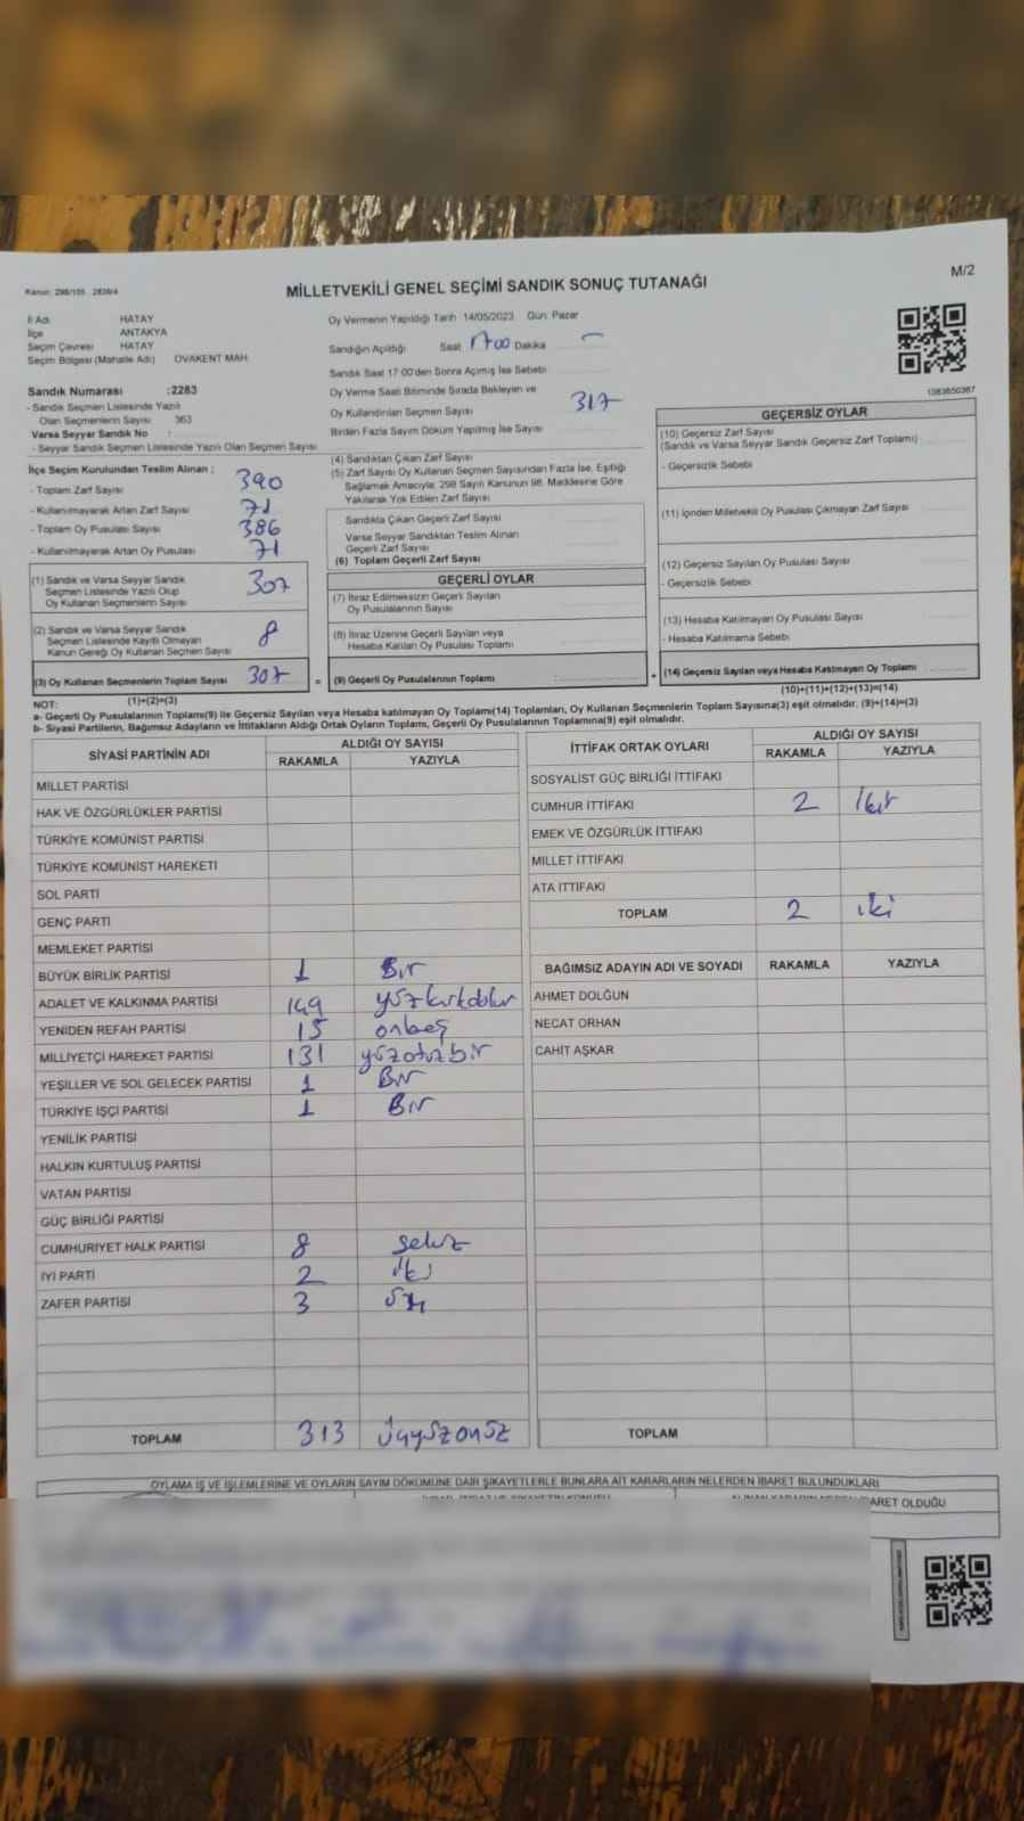 Kanun: 298/105 2839/4
M/2
MİLLETVEKİLİ GENEL SEÇİMİ SANDIK SONUÇ TUTANAĞI
İl Adı HATAY
İlçe ANTAKYA
Seçim Çevresi HATAY
Seçim Bölgesi (Mahalle Adı) OVAKENT MAH.
Sandık Numarası :2283
- Sandık Seçmen Listesinde Yazılı
Olan Seçmenlerin Sayısı 363
Varsa Seyyar Sandık No :
- Seyyar Sandık Seçmen Listesinde Yazılı Olan Seçmen Sayısı
Oy Vermenin Yapıldığı Tarih 14/05/2023 Gün: Pazar
Sandığın Açıldığı Saat 17:00 Dakika
Sandık Saat 17:00'den Sonra Açılmış İse Sebebi
Oy Verme Saati Bitiminde Sırada Bekleyen ve
Oy Kullandırılan Seçmen Sayısı 317
Birden Fazla Sayım Döküm Yapılmış İse Sayısı
1083850367
İlçe Seçim Kurulundan Teslim Alınan ;
- Toplam Zarf Sayısı 390
- Kullanılmayarak Artan Zarf Sayısı 71
- Toplam Oy Pusulası Sayısı 386
- Kullanılmayarak Artan Oy Pusulası 71
(1) Sandık ve Varsa Seyyar Sandık
Seçmen Listesinde Yazılı Olup
Oy Kullanan Seçmenlerin Sayısı 307
(2) Sandık ve Varsa Seyyar Sandık
Seçmen Listesinde Kayıtlı Olmayan
Kanun Gereği Oy Kullanan Seçmen Sayısı 8
(3) Oy Kullanan Seçmenlerin Toplam Sayısı 307 =
(1)+(2)=(3)
(4) Sandıktan Çıkan Zarf Sayısı
(5) Zarf Sayısı Oy Kullanan Seçmen Sayısından Fazla İse, Eşitliği
Sağlamak Amacıyla; 298 Sayılı Kanunun 98. Maddesine Göre
Yakılarak Yok Edilen Zarf Sayısı
Sandıkta Çıkan Geçerli Zarf Sayısı
Varsa Seyyar Sandıktan Teslim Alınan
Geçerli Zarf Sayısı
(6) Toplam Geçerli Zarf Sayısı
GEÇERLİ OYLAR
(7) İtiraz Edilmeksizin Geçerli Sayılan
Oy Pusulalarının Sayısı
(8) İtiraz Üzerine Geçerli Sayılan veya
Hesaba Katılan Oy Pusulası Toplamı
(9) Geçerli Oy Pusulalarının Toplamı : +
GEÇERSİZ OYLAR
(10) Geçersiz Zarf Sayısı
(Sandık ve Varsa Seyyar Sandık Geçersiz Zarf Toplamı)
- Geçersizlik Sebebi
(11) İçinden Milletvekili Oy Pusulası Çıkmayan Zarf Sayısı
(12) Geçersiz Sayılan Oy Pusulası Sayısı
- Geçersizlik Sebebi
(13) Hesaba Katılmayan Oy Pusulası Sayısı
- Hesaba Katılmama Sebebi
(14) Geçersiz Sayılan veya Hesaba Katılmayan Oy Toplamı
(10)+(11)+(12)+(13)=(14)
NOT:
a- Geçerli Oy Pusulalarının Toplamı(9) ile Geçersiz Sayılan veya Hesaba katılmayan Oy Toplamı(14) Toplamları, Oy Kullanan Seçmenlerin Toplam Sayısına(3) eşit olmalıdır. (9)+(14)=(3)
b- Siyasi Partilerin, Bağımsız Adayların ve İttifakların Aldığı Ortak Oyların Toplamı, Geçerli Oy Pusulalarının Toplamına(9) eşit olmalıdır.
SİYASİ PARTİNİN ADI ALDIĞI OY SAYISI
RAKAMLA YAZIYLA
MİLLET PARTİSİ
HAK VE ÖZGÜRLÜKLER PARTİSİ
TÜRKİYE KOMÜNİST PARTİSİ
TÜRKİYE KOMÜNİST HAREKETİ
SOL PARTİ
GENÇ PARTİ
MEMLEKET PARTİSİ
BÜYÜK BİRLİK PARTİSİ 1 Bir
ADALET VE KALKINMA PARTİSİ 149 yüzkırkdokuz
YENİDEN REFAH PARTİSİ 15 onbeş
MİLLİYETÇİ HAREKET PARTİSİ 131 yüzotuzbir
YEŞİLLER VE SOL GELECEK PARTİSİ 1 Bir
TÜRKİYE İŞÇİ PARTİSİ 1 Bir
YENİLİK PARTİSİ
HALKIN KURTULUŞ PARTİSİ
VATAN PARTİSİ
GÜÇ BİRLİĞİ PARTİSİ
CUMHURİYET HALK PARTİSİ 8 sekiz
İYİ PARTİ 2 iki
ZAFER PARTİSİ 3 üç
TOPLAM 313 üçyüzonüç
İTTİFAK ORTAK OYLARI ALDIĞI OY SAYISI
RAKAMLA YAZIYLA
SOSYALİST GÜÇ BİRLİĞİ İTTİFAKI
CUMHUR İTTİFAKI 2 İki
EMEK VE ÖZGÜRLÜK İTTİFAKI
MİLLET İTTİFAKI
ATA İTTİFAKI
TOPLAM 2 iki
BAĞIMSIZ ADAYIN ADI VE SOYADI RAKAMLA YAZIYLA
AHMET DOLĞUN
NECAT ORHAN
CAHİT AŞKAR
TOPLAM
OYLAMA İŞ VE İŞLEMLERİNE VE OYLARIN SAYIM DÖKÜMÜNE DAİR ŞİKAYETLERLE BUNLARA AİT KARARLARIN NELERDEN İBARET BULUNDUKLARI
ARET OLDUĞU